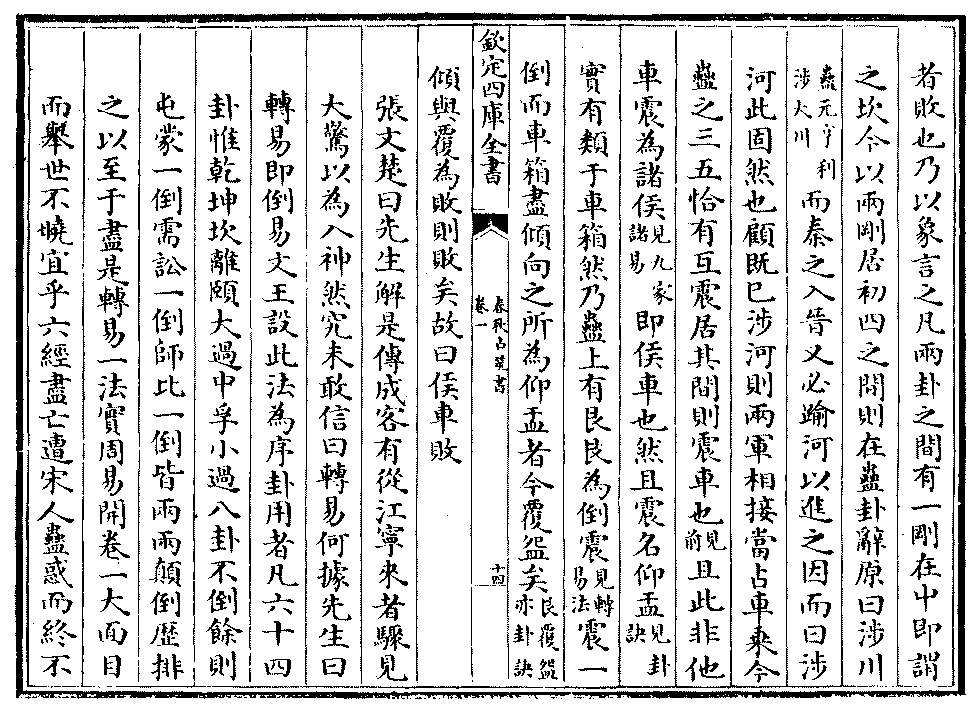 者敗也乃以象言之凡兩卦之間有一剛在中即謂
之坎今以兩剛居初四之間則在蠱卦辭原曰涉川
蠱元亨利涉大川而秦之入晉又必踰河以進之因而曰涉
河此固然也顧既已涉河則兩軍相接當占車乘今
蠱之三五恰有互震居其間則震車也見前且此非他
車震為諸侯見九家諸易即侯車也然且震名仰盂見卦訣
實有類于車箱然乃蠱上有艮艮為倒震見轉易法震一
倒而車箱盡傾向之所為仰盂者今覆盌矣艮覆盌亦卦訣
欽定四庫全書
春秋占筮書
卷一
十四
傾與覆為敗則敗矣故曰侯車敗
張文楚曰先生解是傳成客有從江寧來者驟見
大驚以為入神然究未敢信曰轉易何據先生曰
轉易即倒易文王設此法為序卦用者凡六十四
卦惟乾坤坎離頤大過中孚小過八卦不倒餘則
屯蒙一倒需訟一倒師比一倒皆兩兩顛倒歷排
之以至于盡是轉易一法實周易開卷一大面目
而舉世不曉宜乎六經盡亡遭宋人蠱惑而終不